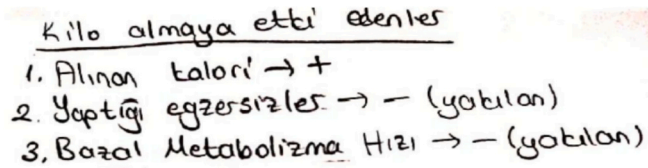 Kilo almaya etki edenler
1. Alınan kalori → +
2. Yaptığı egzersizler → - (yakılan)
3. Bazal Metabolizma Hızı → - (yakılan)